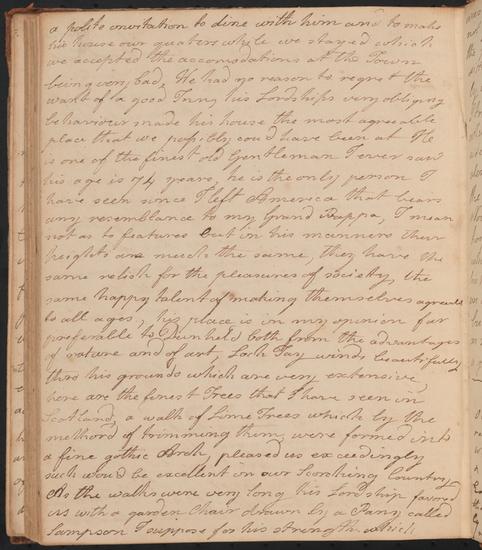 a polite invitation to dine with him and to make
his house our quaters while we stayed which
we accepted the accomodations at the Town
being very bad, We had no reason to regret the
want of a good Inn, his Lordships very obliging
behaviour made his house the most agreeable
place that we possibly could have been at He
is one of the finest old Gentleman I ever saw
his age is 74 years, he is the only person I
have seen since I left America that bears
any resemblance to my Grand Pappa, I mean
not as to features but in his manners their
heights are much the same, they have the
same relish for the pleasures of society, the
same happy talent of making themselves agreeable
to all ages, his place is in my opinion far
preferable to Dunkeld both from the advantages
of nature and of art, Loch Tay winds beautifully
thro his grounds which are very extensive
here are the finest Trees that I have seen in
Scotland, a walk of Lime Trees which by the
method of trimming them, were formed into
a fine gothic Arch, pleased us exceedingly
such would be excellent in our Scorching Country
As the walks were very long his Lordship favored
us with a garden Chair drawn by a Pony called
Sampson I suppose for his strength which